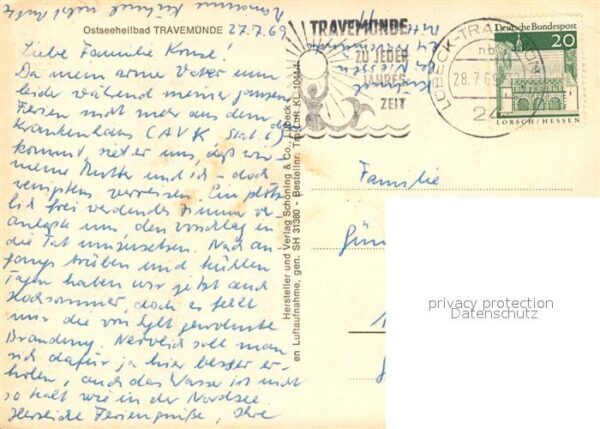 Ostseeheilbad TRAVEMÜNDE 27.7.69
Liebe Familie
Da mein armer Vater nun
leider während meiner ganzen
Ferien nicht mehr aus dem
Krankenhaus (AVK Stat. 6)
kommt, riet er uns, daß wir –
meine Mutter und ich – doch
wenigstens verreisen. Ein plötz-
lich frei werdendes Zimmer ver-
anlaßte uns, den Vorschlag in
die Tat umzusetzen. Nach an-
fangs trüben und kühlen
Tagen haben wir jetzt auch
Hochsommer, doch es fehlt
mir die von Sylt gewohnte
Brandung. Nervlich soll man
sich dafür ja hier besser er-
holen, auch das Wasser ist nicht
so kalt wie in der Nordsee
Herzliche Feriengrüße, Ihre
Hersteller und Verlag Schöning & Co., Lübeck
en Luftaufnahme, gen. SH 31380 - Bestellnr. Trav. Luft. KL 1044
TRAVEMÜNDE
ZU JEDER
JAHRES-
ZEIT
LÜBECK-TRAVEMÜNDE
28.7.69
24
Deutsche Bundespost
20
LORSCH/HESSEN
Familie
privacy protection
Datenschutz